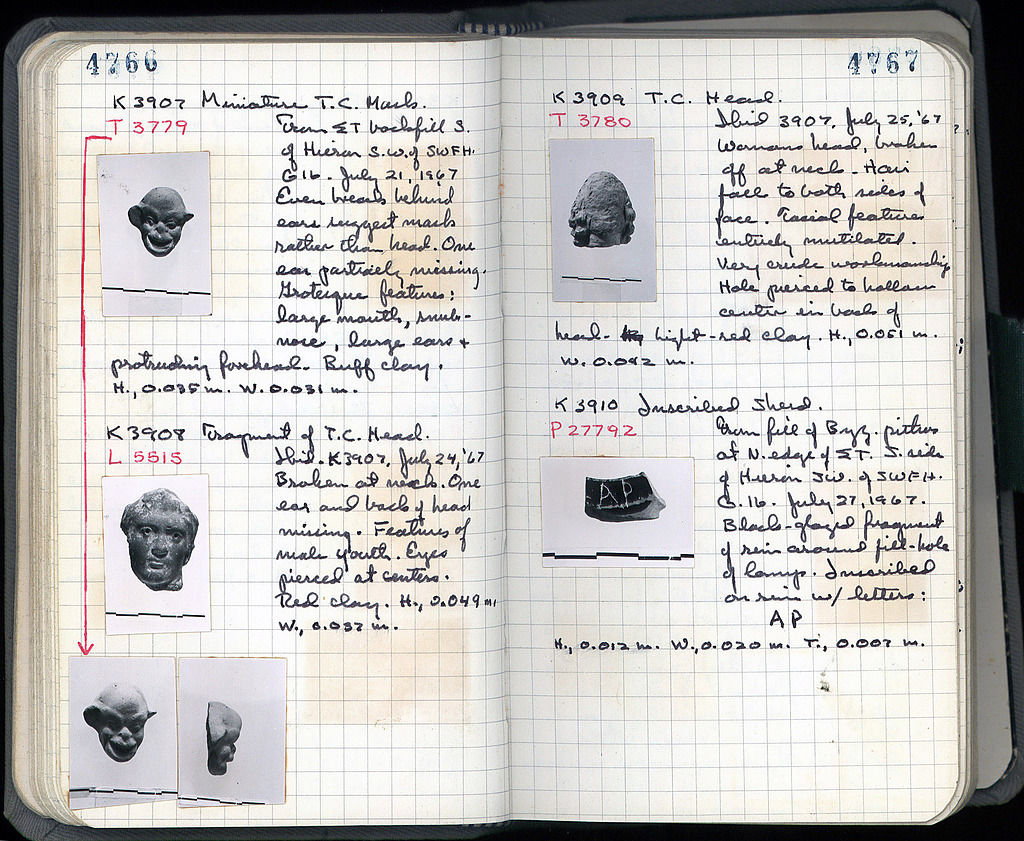 4766
K 3907 Miniature T.C. Mask.
T 3779
From ΣT backfill S.
of Hieron S.W. of SWFH.
G 16. July 21, 1967
Even break behind
ears suggest mask
rather than head. One
ear partially missing.
Grotesque features:
large mouth, snub-
nose, large ears +
protruding forehead. Buff clay.
H., 0.035 m. W. 0.031 m.
K 3908 Fragment of T.C. Head.
L 5515
Ibid. K3907, July 24, '67
Broken at neck. One
ear and back of head
missing. Features of
male youth. Eyes
pierced at centers.
Red clay. H., 0.049 m.
W., 0.037 m.
4767
K 3909 T.C. Head.
T 3780
Ibid 3907, July 25, '67
Womans head, broken
off at neck. Hair
fall to both sides of
face. Facial features
entirely mutilated.
Very crude workmanship
Hole pierced to hollow
center in back of
head. light-red clay. H., 0.051 m.
W. 0.042 m.
K 3910 Inscribed Sherd.
P 27792
From fill of Byz. pithos
at N. edge of ΣT. S. side
of Hieron SW. of SWFH.
G. 16. July 27, 1967.
Black-glazed fragment
of rim around fill-hole
of lamp. Inscribed
on rim w/ letters:
AP
AP
H., 0.012 m. W., 0.020 m. T., 0.007 m.